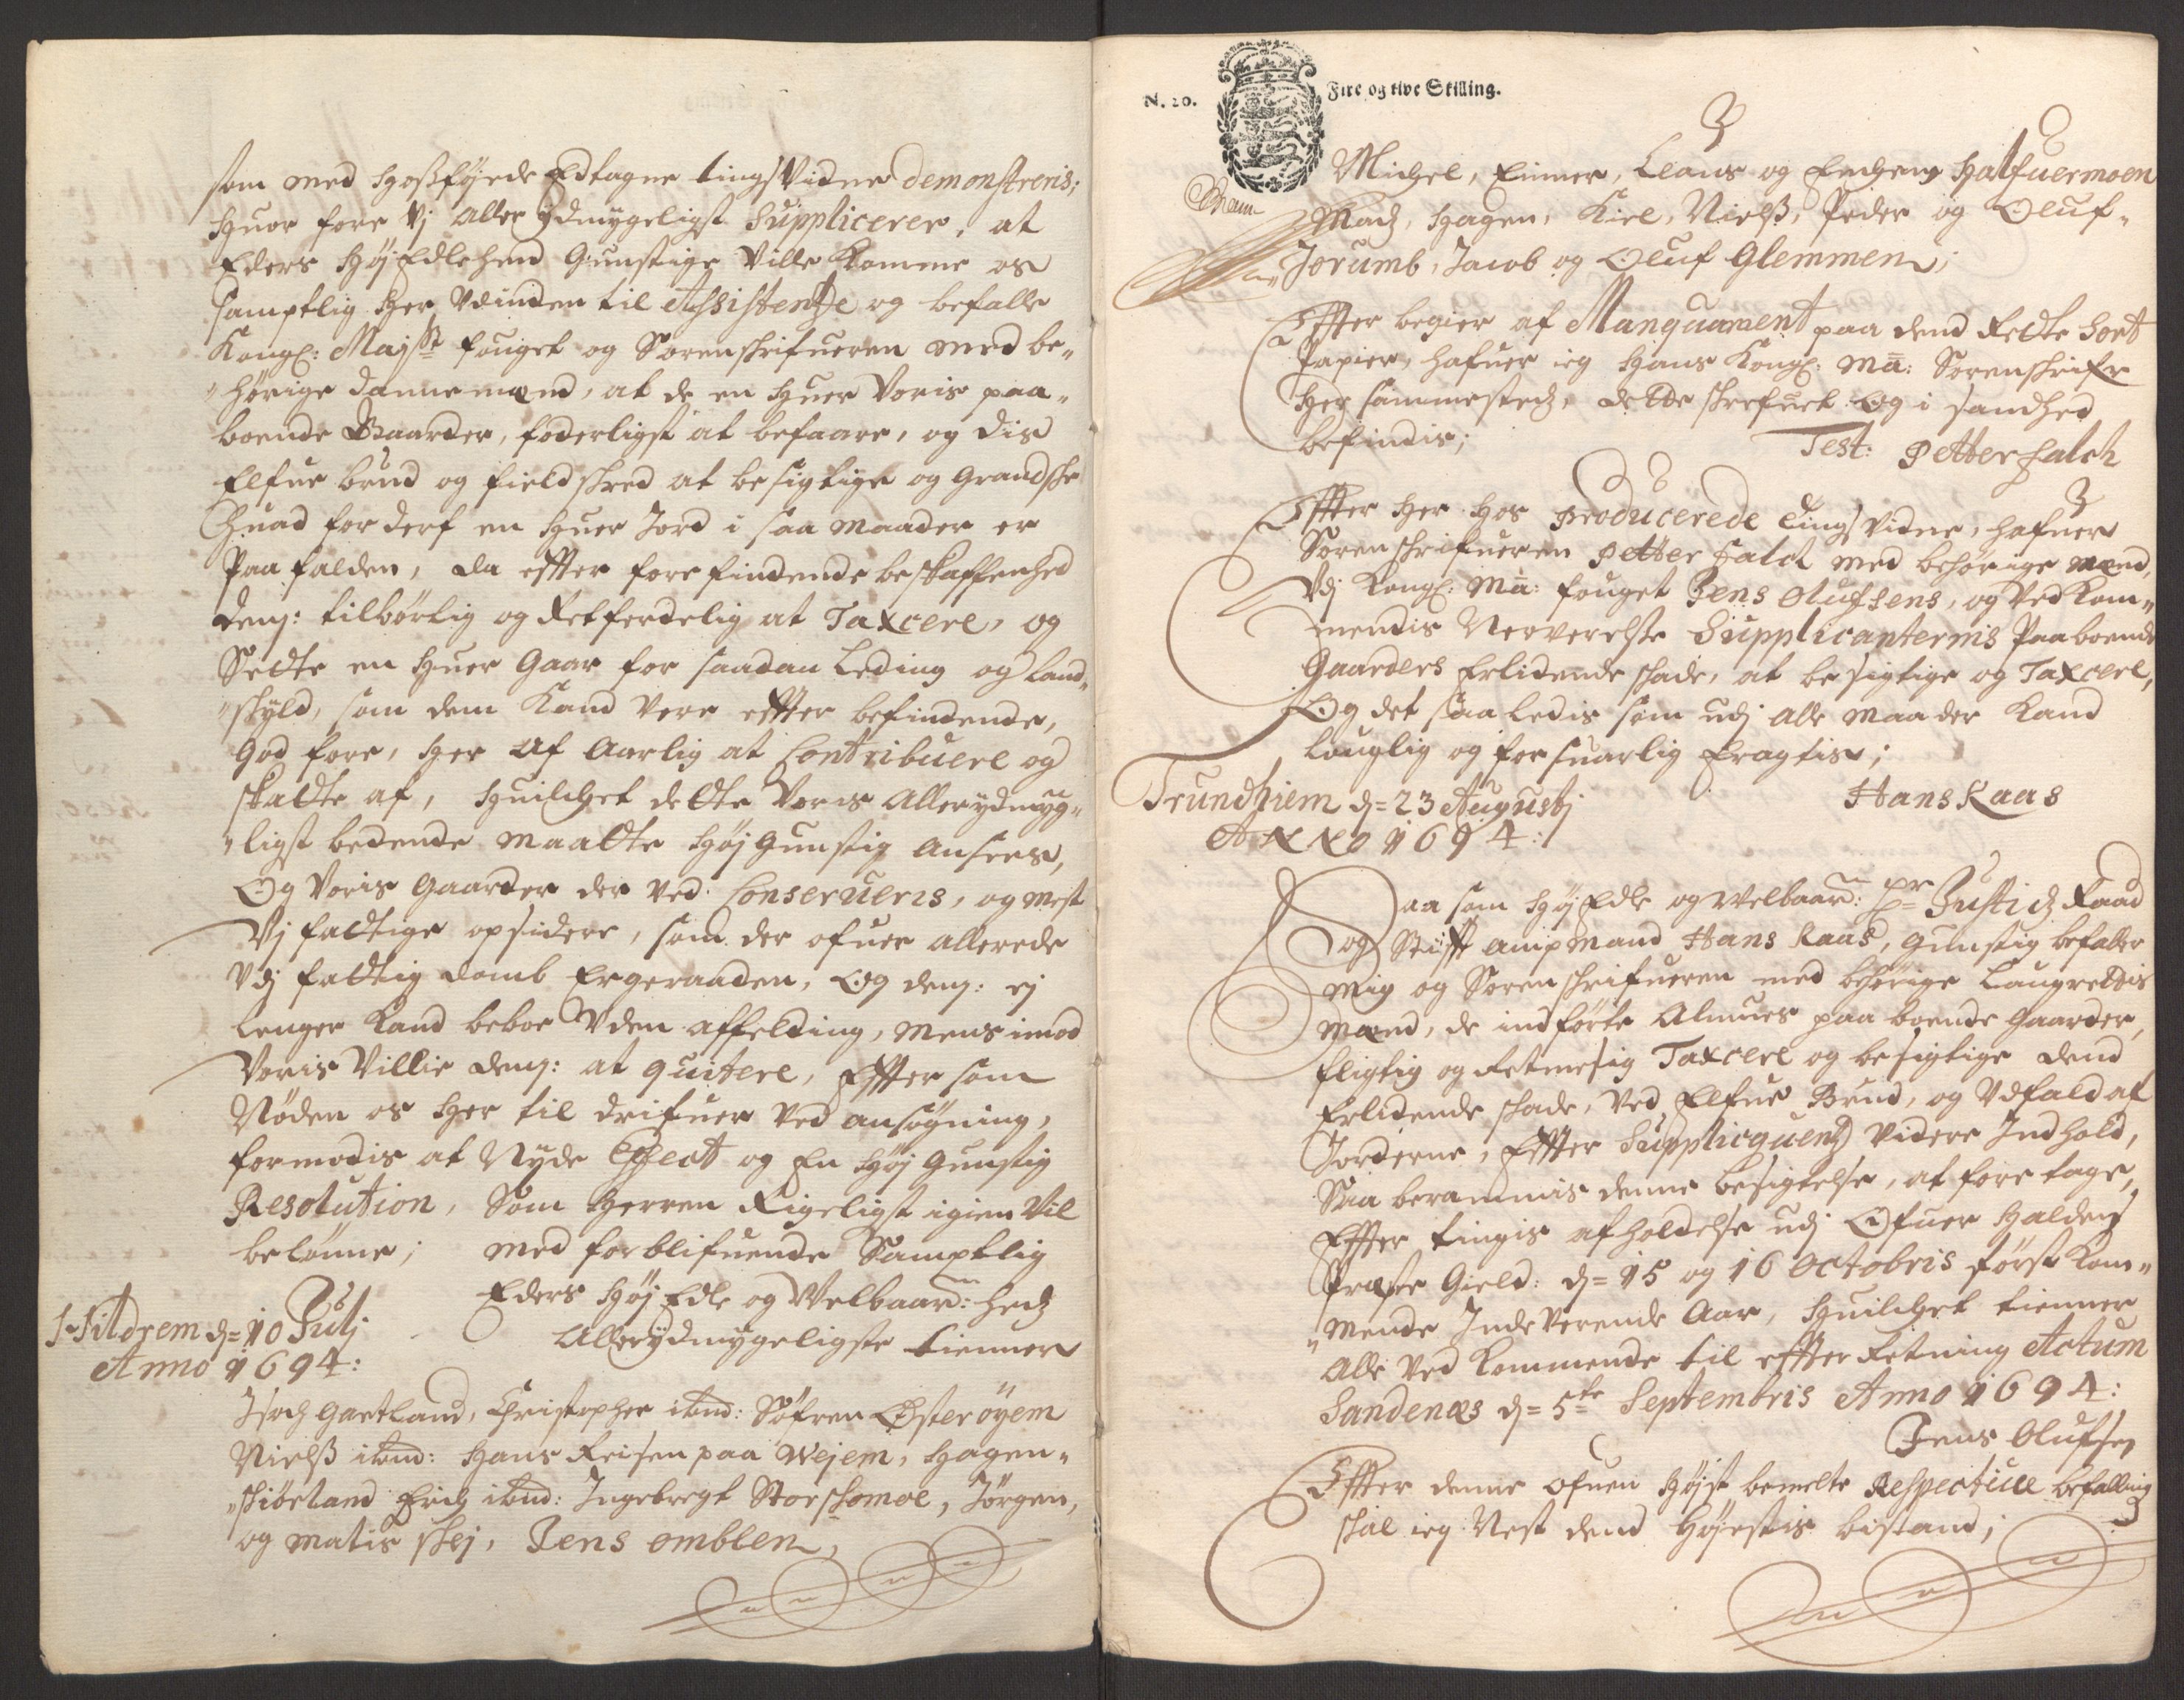 som med Hosføjede Edtagne tings Vidne demonstreris;
Huor fore Vj aller ydmygeligst Supplicerer, at
Eders HøjEdlehend Gunstige Ville komme os
samptlig her Vdinden til Assistentze og befalle
Kongl: Majst fouget og Sorenskrifueren med be„
„hörige dannemænd, at de en Huer Voris paa„
boende Gaarder, foderligst at befaare, og dis
Elfue brud og field skred at besigtige og Grandske
Huad forderf en Huer Jord i saa maader er
Paafalden, da effter forefindende beskaffenhed
denn: tilbörlig og Retferdelig at Taxcere, og
Sette en Huer Gaar for saadan Leding og Land„
„skyld, som dem Kand vere effter befindende,
God fore, her af Aarlig at Contribuere og
skatte af, Huilchet dette Voris Allerydmyg„
„ligst bedende maatte Høj gunstig ansees,
Og Voris Gaarder der ved Conserueris, og mest
Vj fattige opsidere, som der ofuer allerede
Vdj fattig domb Ergeraaden, Og denn: ej
lenger Kand beboe Vden affelding, mens imod
Voris Villie denn: at quitere, Effter som
Nøden os her til drifuer Ved ansøgning,
formodis at Nyde Effect og En Høj Gunstig
Resolution, Som Herren Rigeligst igien Vil
belönne; med forblifuende Samptlig
Eders Høj Edle og Welbaarn: hedz
Allerydmygeligste tienner
Hildrem d= 10 Julj
Anno 1694:
Isach Gartland, Christopher ibnd: Söfren Østerøyem
Nielß ibnd: Hans Reisen paa Wejem, Hagen„
„skiörland Erich ibnd: Ingebregt Storskomoe, Jörgen,
og Matis skej, Jens omblen,
N. 20. Fire og tive Skilling.
Michel, Einner, Claus og Halfuermoen
Mads, Hagen, Kiel, Nielß, Peder og Oluf„
„Jörumb, Jacob og Oluf Glemmen;
Effter begier af Manquament paa dend Rette sort
Papier, hafuer ieg Hans Kongl: Ma: Sorenskrifr
her sammesteds, dette skrefuet Og i sandhed
befindis; Test: Petter falch
Effter her hos Producerede tings Vidne, hafuer
Sorenskrifueren Petter falch med behörige mænd,
Vdj Kongl: Ma: fouget Jens Olufsens, og Ved Kom„
mendis Nerverelße Supplicanternis Paaboende
Gaarders Erlidende skade, at besigtige og Taxcere,
Og det saaledis som udj alle maader Kand
lauglig og forsuarlig Eragtis;
Trundhiem d= 23 Augustj Hans Kaas
Anno 1694:
Saa som HøjEdle og Welbaarn: Hr Justidz Raad
og Stifft amptmand Hans Kaas, gunstig befaller
mig og Sorenskrifueren med behörige Laugrettis
mænd, de indförte Almues paa boende Gaarder,
fligtig og Retmesig Taxcere og besigtige dend
Erlidende skade, ved Elfue Brud, og Vdfald af
Jorderne, Effter Supplicquentz Videre Indhold,
Saa berammis denne besigtelse, at foretage,
Effter tingis afholdelse udj Ofuer Haldens
Præste Gield: d= 15 og 16 Octobris først Kom„
„mende Indeverende Aar, Huilchet tienner
Alle Ved Kommende til effter Retning Actum
Sandenæs d= 5te Septembris Anno 1694:
Jens Olufsen
Effter denne ofuen Højst bemelte Respective befalling
skal ieg Nest dend Højestis bistand;